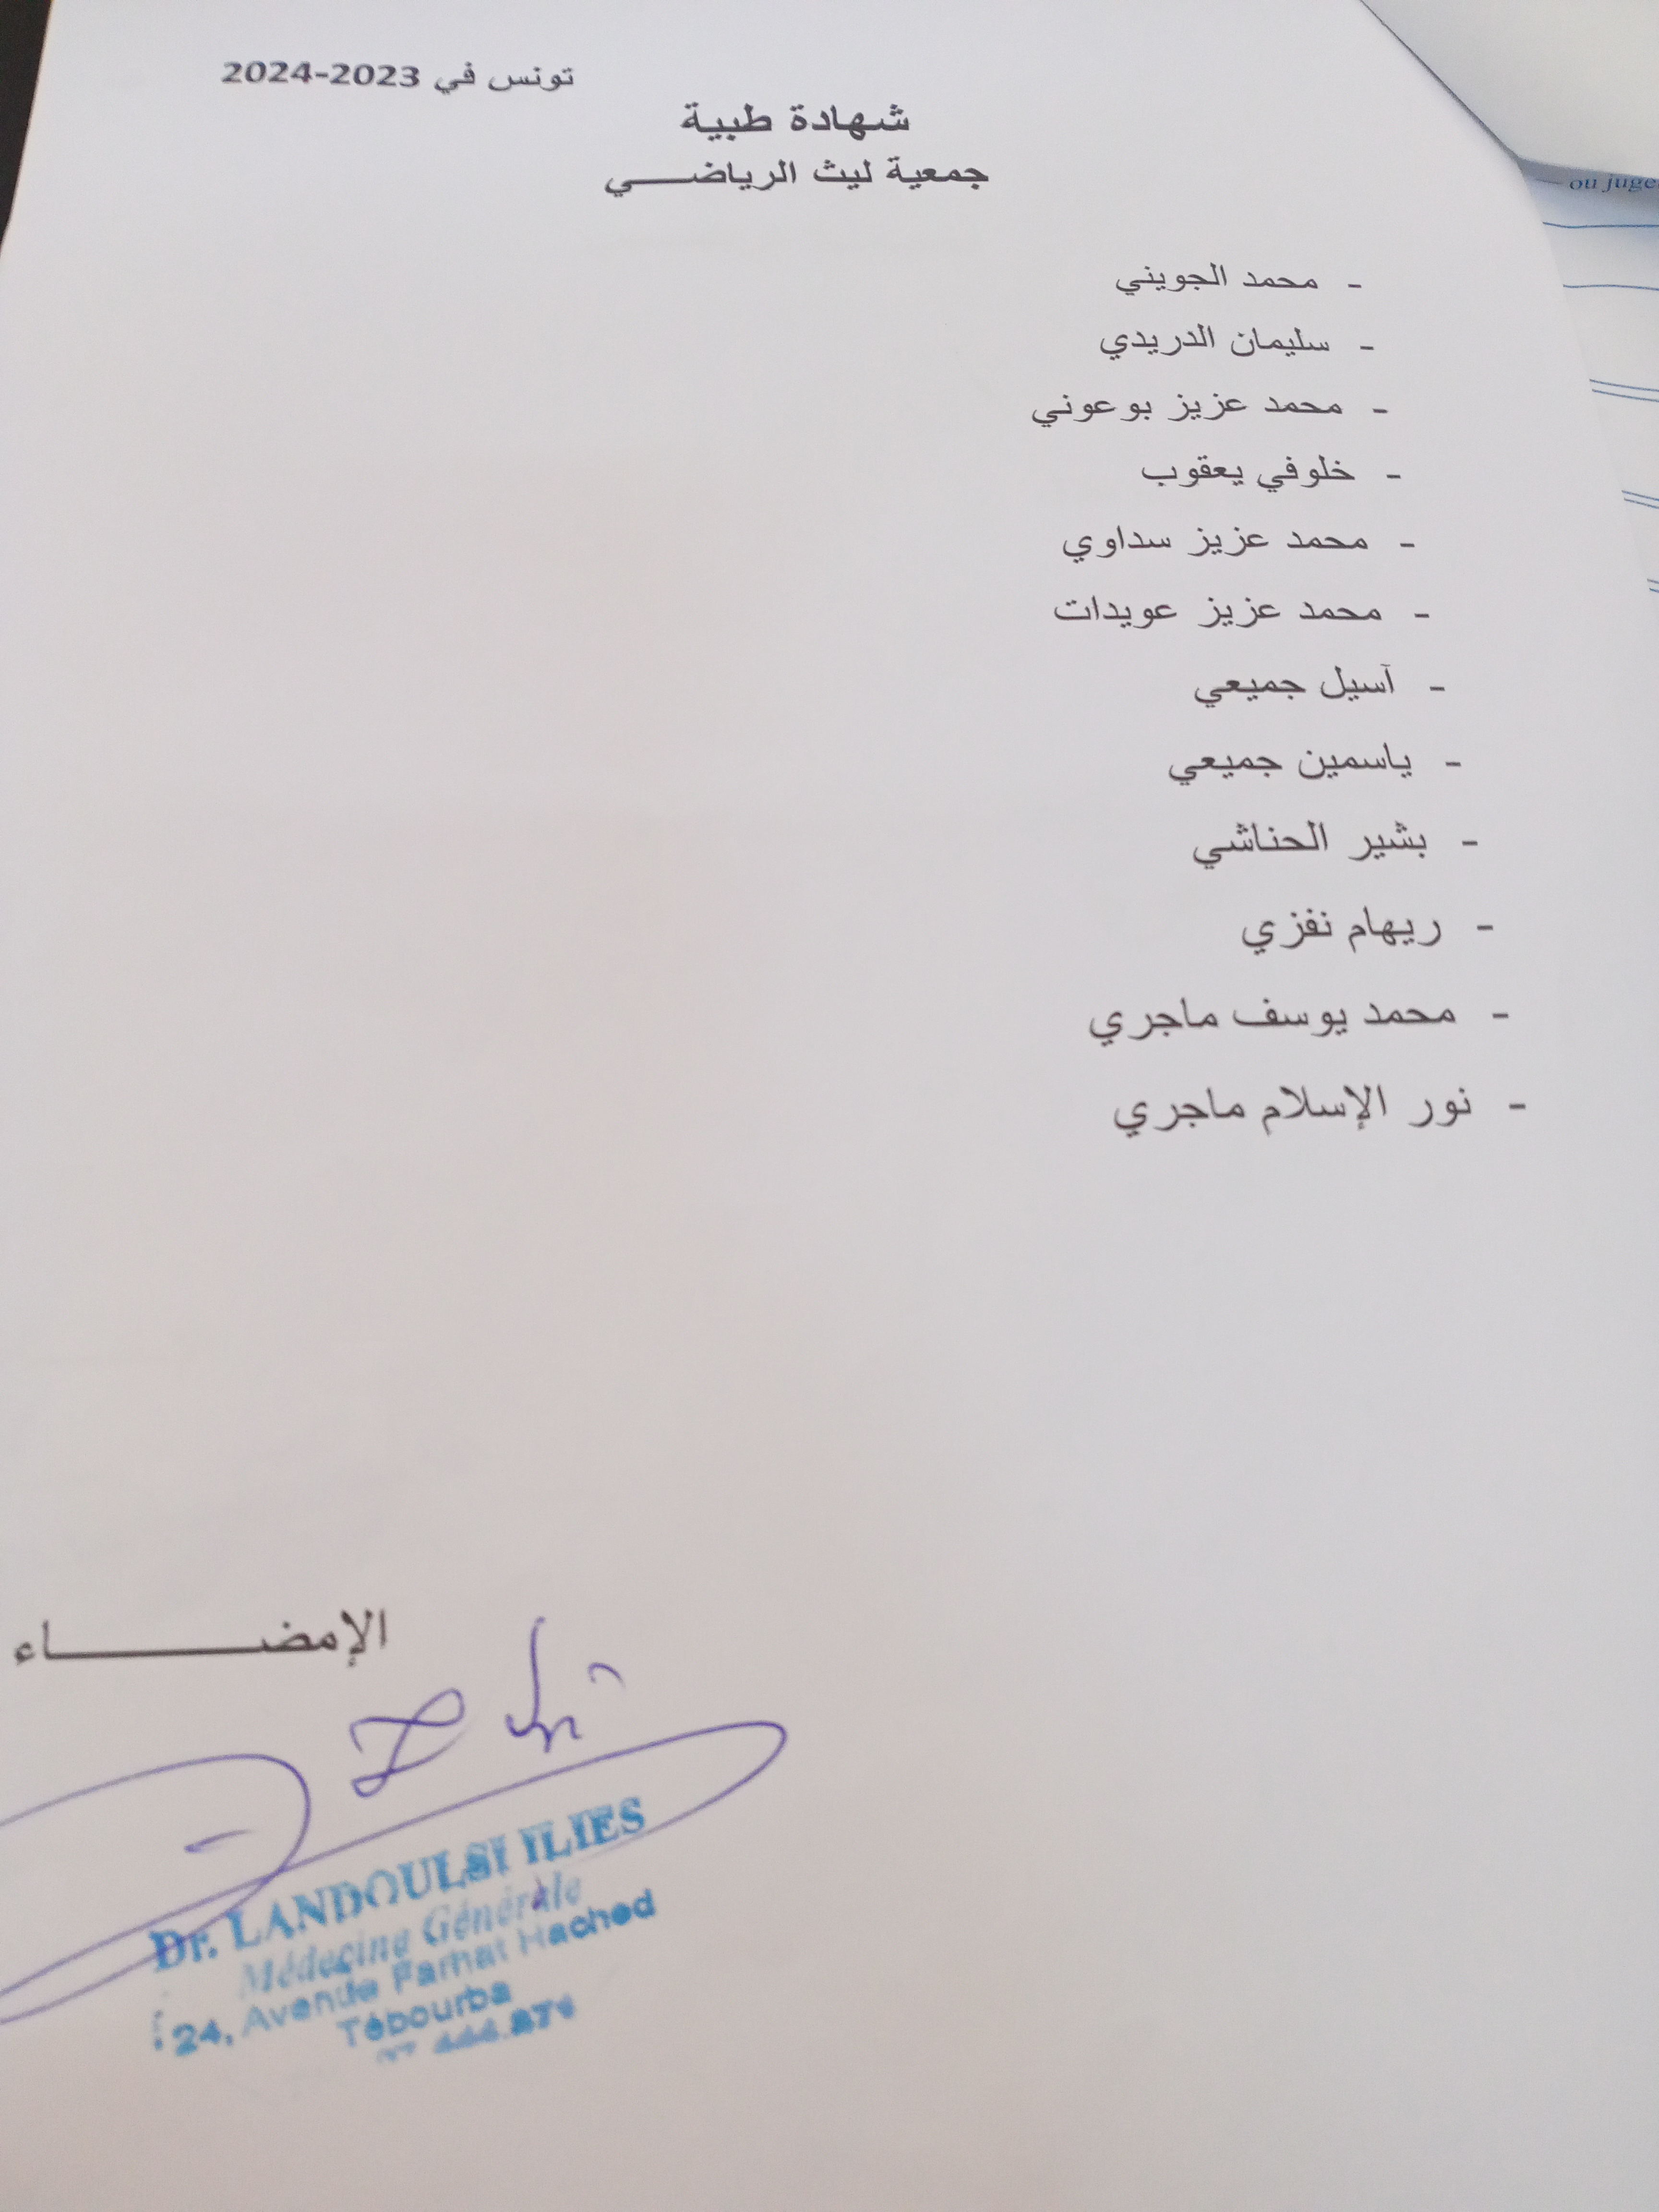 تونس في 2023-2024
شهادة طبية
جمعية ليث الرياضـــــي
- محمد الجويني
- سليمان الدريدي
- محمد عزيز بوعوني
- خلوفي يعقوب
- محمد عزيز سداوي
- محمد عزيز عويدات
- آسيل جميعي
- ياسمين جميعي
- بشير الحناشي
- ريهام نفزي
- محمد يوسف ماجري
- نور الإسلام ماجري
الإمضــــــــــــاء
Dr. LANDOULSI ILIES
Médecine Générale
24, Avenue Farhat Hached
Tébourba
ou juge